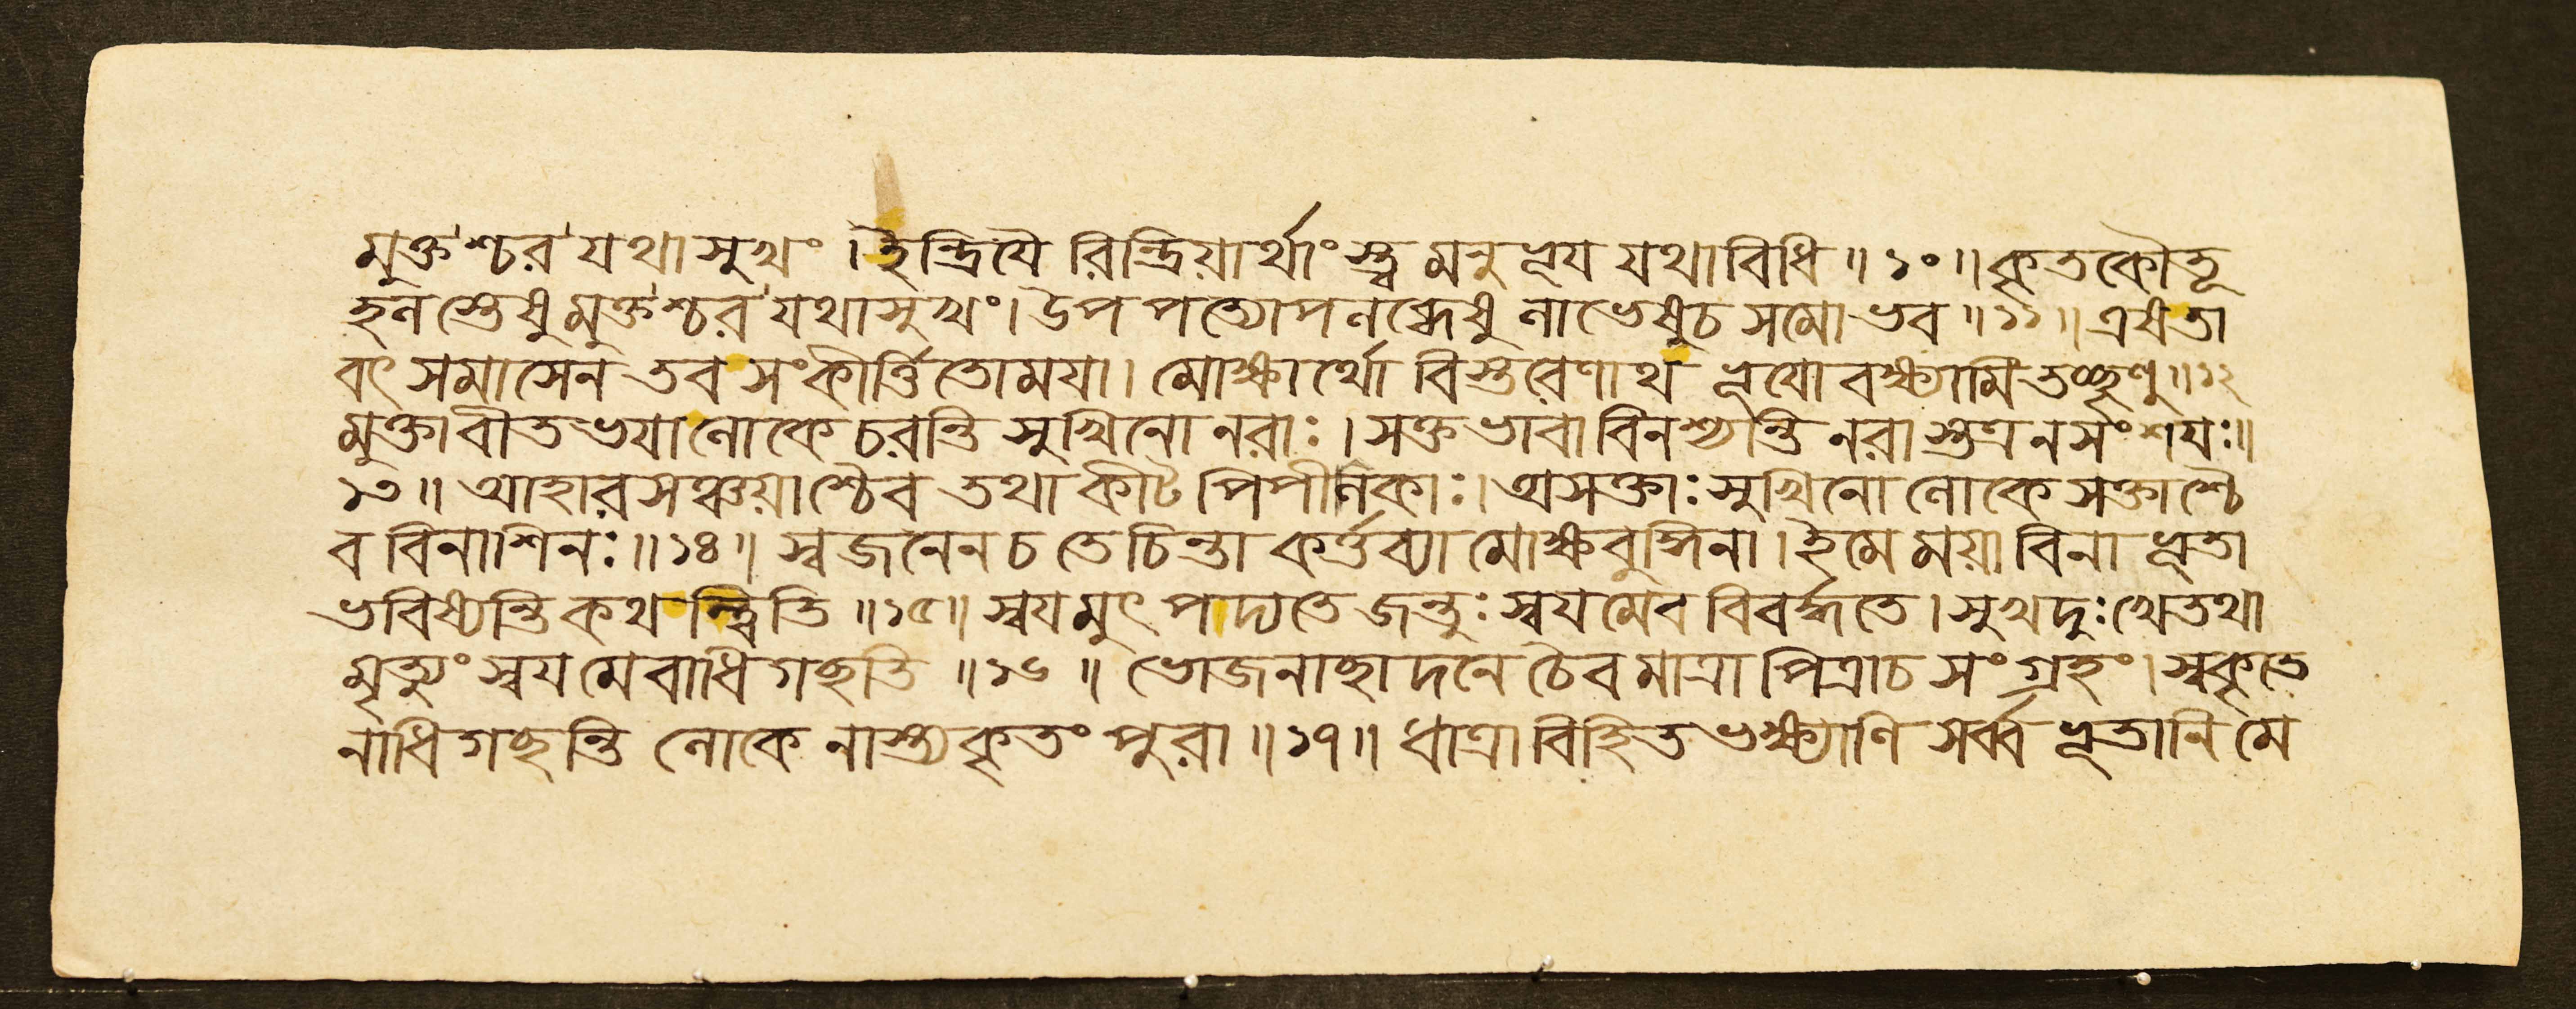 মুক্তশ্চর যথাসুখং । ইন্দ্রিযৈ রিন্দ্রিয়ার্থাংস্ত্ব মনুভূয যথাবিধি ॥ ১০ ॥ কৃতকৌতূ
হলস্তেষু মুক্তশ্চর যথাসুখং । উপপত্ত্যোপলব্ধেষু লাভেষু চ সমো ভব ॥ ১১ ॥ এষ তা
বৎ সমাসেন তব সংকীর্ত্তিতো ময়া । মোক্ষার্থো বিস্তরেণাথ ভূযো বক্ষ্যামি তচ্ছৃণু ॥ ১২
মুক্তা বীতভযা লোকে চরন্তি সুখিনো নরাঃ । সক্তভাবা বিনশ্যন্তি নরাস্তত্র ন সংশযঃ ॥
১৩ ॥ আহারসঞ্চয়াশ্চৈব তথা কীটপিপীলিকাঃ । অসক্তাঃ সুখিনো লোকে সক্তাশ্চৈ
ব বিনাশিনঃ ॥ ১৪ ॥ স্বজনে ন চ তে চিন্তা কর্ত্তব্যা মোক্ষবুদ্ধিনা । ইমে ময়া বিনা ভূতা
ভবিষ্যন্তি কথন্ত্বিতি ॥ ১৫ ॥ স্বযমুৎপদ্যতে জন্তুঃ স্বযমেব বিবর্দ্ধতে । সুখদুঃখে তথা
মৃত্যুং স্বযমেবাধিগছতি ॥ ১৬ ॥ ভোজনাছাদনে চৈব মাত্রা পিত্রা চ সংগ্রহং । স্বকৃতে
নাধিগছন্তি লোকে নাস্ত্যকৃতং পুরা ॥ ১৭ ॥ ধাত্রা বিহিত ভক্ষ্যাণি সর্ব্বভূতানি মে